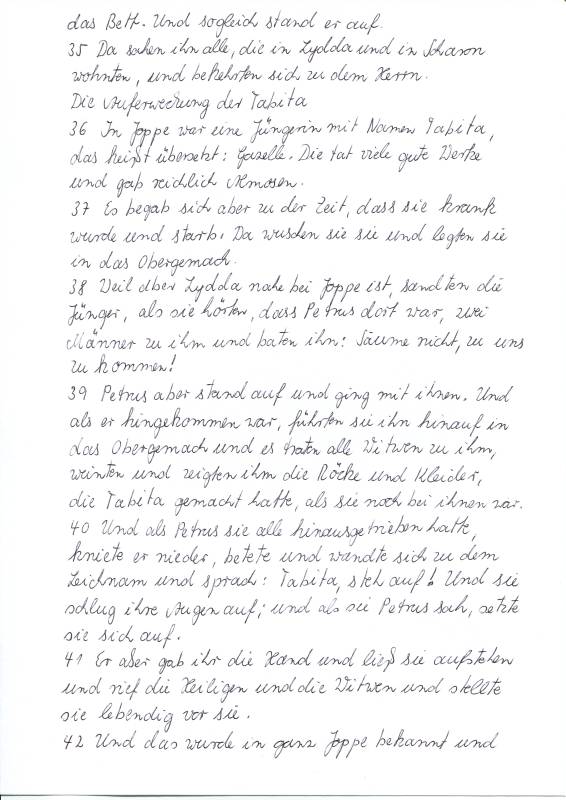 das Bett. Und sogleich stand er auf.
35 Da sahen ihn alle, die in Lydda und in Scharon
wohnten, und bekehrten sich zu dem Herrn.
Die Auferweckung der Tabita
36 In Joppe war eine Jüngerin mit Namen Tabita,
das heißt übersetzt: Gazelle. Die tat viele gute Werke
und gab reichlich Almosen.
37 Es begab sich aber zu der Zeit, dass sie krank
wurde und starb. Da wuschen sie sie und legten sie
in das Obergemach.
38 Weil aber Lydda nahe bei Joppe ist, sandten die
Jünger, als sie hörten, dass Petrus dort war, zwei
Männer zu ihm und baten ihn: Säume nicht, zu uns
zu kommen!
39 Petrus aber stand auf und ging mit ihnen. Und
als er hingekommen war, führten sie ihn hinauf in
das Obergemach und es traten alle Witwen zu ihm,
weinten und zeigten ihm die Röcke und Kleider,
die Tabita gemacht hatte, als sie noch bei ihnen war.
40 Und als Petrus sie alle hinausgetrieben hatte,
kniete er nieder, betete und wandte sich zu dem
Leichnam und sprach: Tabita, steh auf! Und sie
schlug ihre Augen auf; und als sie Petrus sah, setzte
sie sich auf.
41 Er aber gab ihr die Hand und ließ sie aufstehen
und rief die Heiligen und die Witwen und stellte
sie lebendig vor sie.
42 Und das wurde in ganz Joppe bekannt und